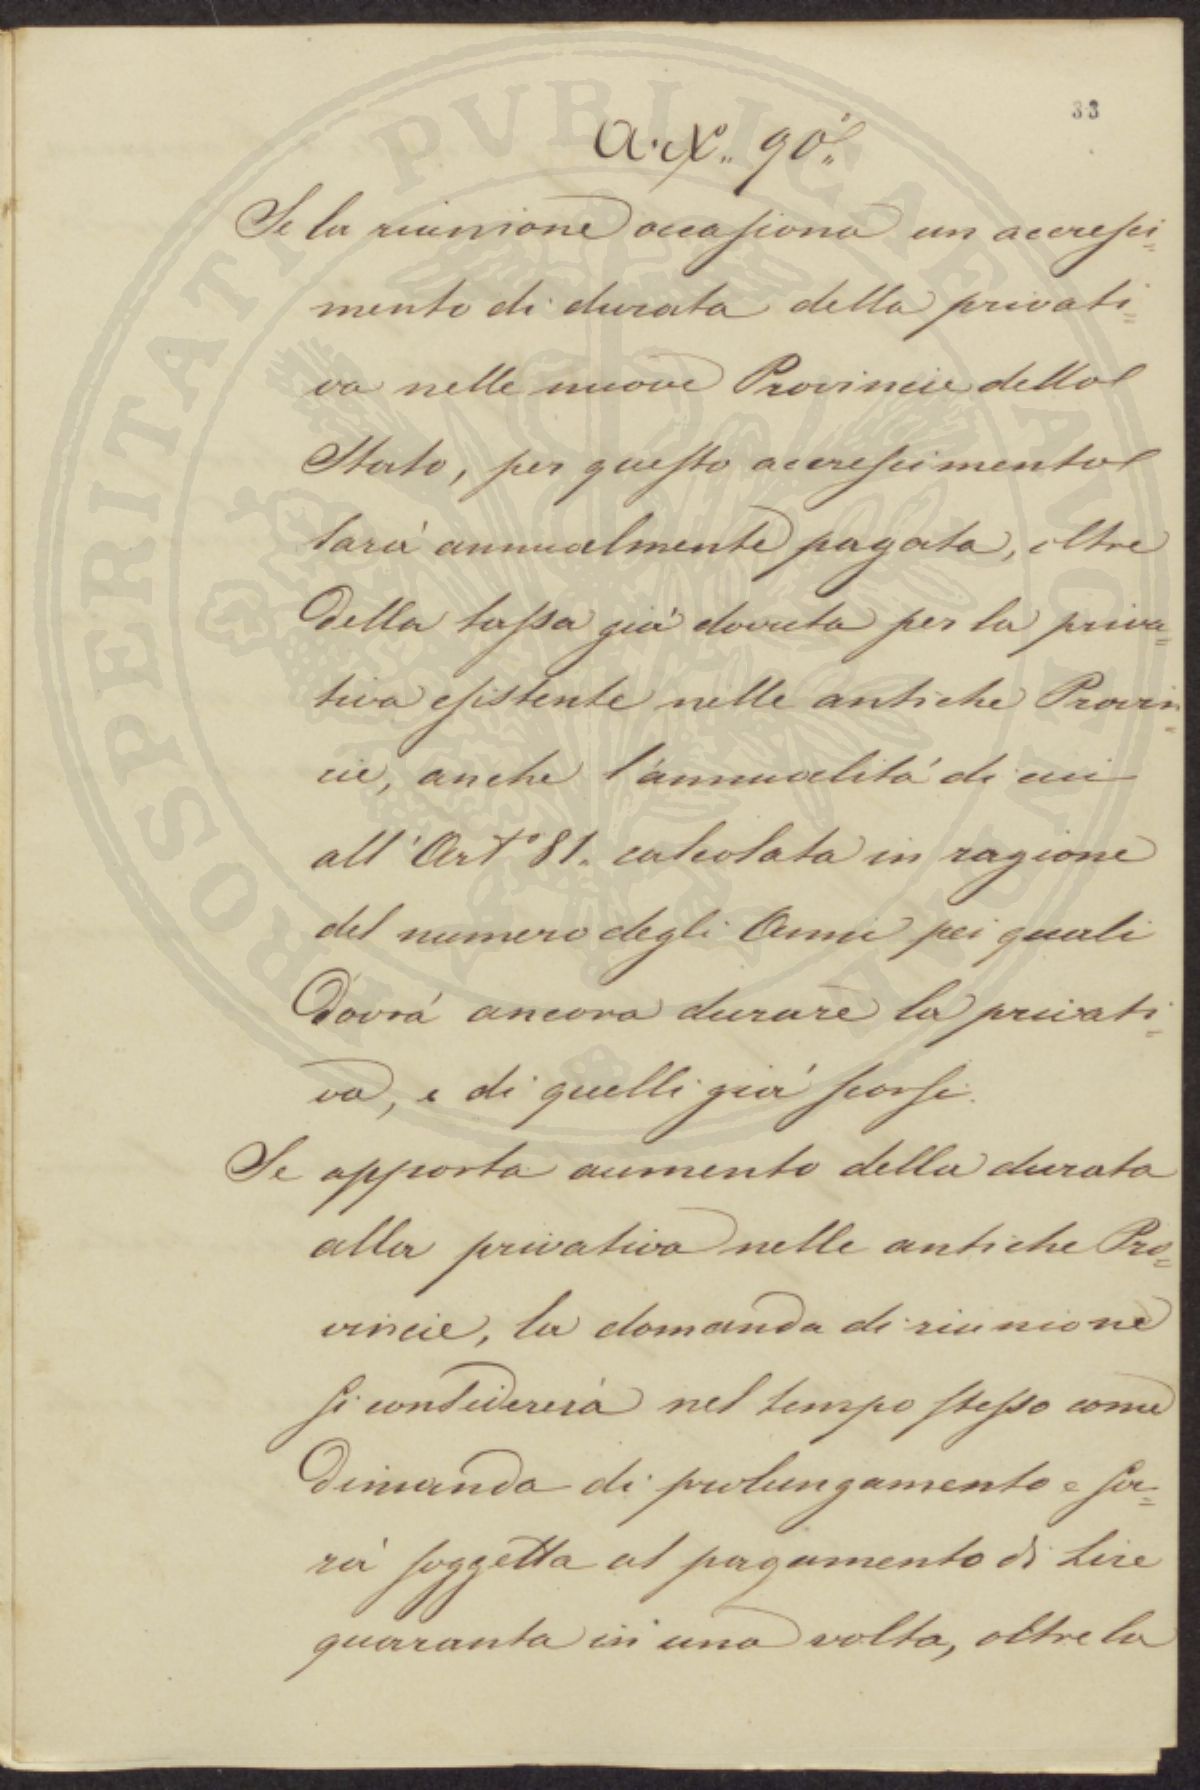 33
A.X.. 90..
Se la riunione occasiona un accresci=
mento di durata della privati=
va nelle nuove Provincie dello
Stato, per questo accrescimento
sarà annualmente pagata, oltre
della tassa già dovuta per la priva=
tiva esistente nelle antiche Provin=
cie, anche l'annualità di cui
all'Art.° 81. calcolata in ragione
del numero degli Anni pei quali
dovrà ancora durare la privati=
va, e di quelli già scorsi.
Se apporta aumento della durata
alla privativa nelle antiche Pro=
vincie, la domanda di riunione
si considererà nel tempo stesso come
dimanda di prolungamento e sa=
rà soggetta al pagamento di Lire
quaranta in una volta, oltre la
PROSPERITATI PVBLICAE AVGENDAE